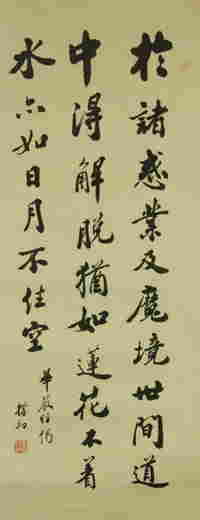 於諸惑業及魔境世間道
中得解脫猶如蓮花不着
水亦如日月不住空
華嚴經偈